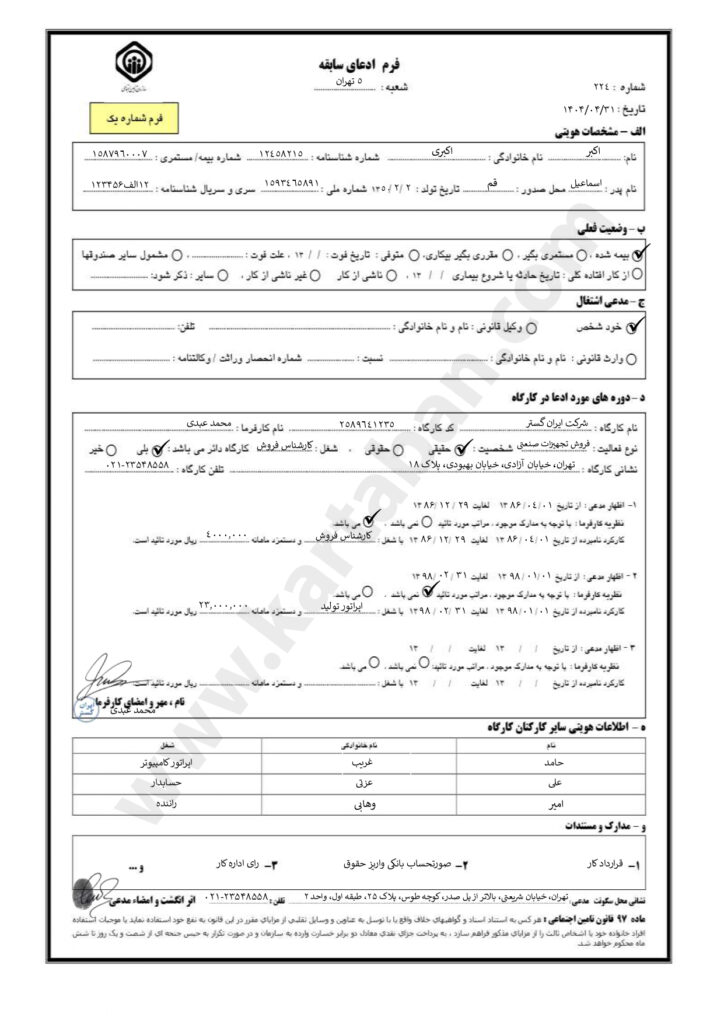 فرم ادعای سابقه
شعبه : ۵ تهران
شماره : ۲۲۴
تاریخ : ۱۴۰۴/۰۴/۳۱
فرم شماره یک
الف - مشخصات هویتی
نام: اکبر نام خانوادگی : اکبری شماره شناسنامه : ۱۲۴۵۸۲۱۵ شماره بیمه/ مستمری : ۱۵۸۷۹۶۰۰۰۷
نام پدر : اسماعیل محل صدور : قم تاریخ تولد : ۱۳۵۰/۲/۲ شماره ملی : ۱۵۹۳۴۶۵۸۹۱ سری و سریال شناسنامه : ۱۲الف۱۲۳۴۵۶
ب - وضعیت فعلی
بیمه شده ، مستمری بگیر ، مقرری بگیر بیکاری، متوفی : تاریخ فوت : / / ۱۳ ، علت فوت : ، مشمول سایر صندوقها
از کار افتاده کلی : تاریخ حادثه یا شروع بیماری / / ۱۳ ، ناشی از کار غیر ناشی از کار ، سایر : ذکر شود:
ج - مدعی اشتغال
خود شخص وکیل قانونی : نام و نام خانوادگی : تلفن:
وارث قانونی : نام و نام خانوادگی : نسبت : شماره انحصار وراثت / وکالتنامه :
د - دوره های مورد ادعا در کارگاه
نام کارگاه : شرکت ایران گستر کد کارگاه : ۲۵۸۹۶۴۱۲۳۵ نام کارفرما : محمد عبدی
نوع فعالیت : فروش تجهیزات صنعتی شخصیت : حقیقی حقوقی ، شغل : کارشناس فروش کارگاه دائر می باشد : بلی خیر
نشانی کارگاه : تهران، خیابان آزادی، خیابان بهبودی، پلاک ۱۸ تلفن کارگاه : ۰۲۱-۲۳۵۴۸۵۵۸
۱- اظهار مدعی : از تاریخ ۱۳۸۶/۰۴/۰۱ لغایت ۱۳۸۶/۱۲/۲۹
نظریه کارفرما: با توجه به مدارک موجود ، مراتب مورد تائید نمی باشد ، می باشد.
کارکرد نامبرده از تاریخ ۱۳۸۶/۰۴/۰۱ لغایت ۱۳۸۶/۱۲/۲۹ با شغل : کارشناس فروش و دستمزد ماهانه ۴۰۰۰,۰۰۰ ریال مورد تائید است.
۲- اظهار مدعی : از تاریخ ۱۳۹۸/۰۱/۰۱ لغایت ۱۳۹۸/۰۲/۳۱
نظریه کارفرما: با توجه به مدارک موجود ، مراتب مورد تائید نمی باشد ، می باشد.
کارکرد نامبرده از تاریخ ۱۳۹۸/۰۱/۰۱ لغایت ۱۳۹۸/۰۲/۳۱ با شغل : اپراتور تولید و دستمزد ماهانه ۲۳,۰۰۰,۰۰۰ ریال مورد تائید است.
۳- اظهار مدعی : از تاریخ / / ۱۳ لغایت / / ۱۳
نظریه کارفرما : با توجه به مدارک موجود ، مراتب مورد تائید: نمی باشد ، می باشد.
کارکرد نامبرده از تاریخ / / ۱۳ لغایت / / ۱۳ با شغل : و دستمزد ماهانه ریال مورد تائید است.
نام ، مهر و امضای کارفرما
محمد عبدی
ایران گستر
ه - اطلاعات هویتی سایر کارکنان کارگاه
نام نام خانوادگی شغل
حامد غریب اپراتور کامپیوتر
علی عزتی حسابدار
امیر وهابی راننده
و - مدارک و مستندات
۱- قرارداد کار ۲- صورتحساب بانکی واریز حقوق ۳- رای اداره کار و ...
نشانی محل سکونت مدعی: تهران، خیابان شریعتی، بالاتر از پل صدر، کوچه طوس، پلاک ۲۵، طبقه اول، واحد ۲ تلفن : ۰۲۱-۲۳۵۴۸۵۵۸ اثر انگشت و امضاء مدعی
ماده ۹۷ قانون تامین اجتماعی : هر کس به استناد اسناد و گواهیهای خلاف واقع یا با توسل به عناوین و وسایل تقلبی از مزایای مقرر در این قانون به نفع خود استفاده نماید یا موجبات استفاده
افراد خانواده خود یا اشخاص ثالث را از مزایای مذکور فراهم سازد ، به پرداخت جزای نقدی معادل دو برابر خسارت وارده به سازمان و در صورت تکرار به حبس جنحه ای از شصت و یک روز تا شش
ماه محکوم خواهد شد.
www.kartaban.com